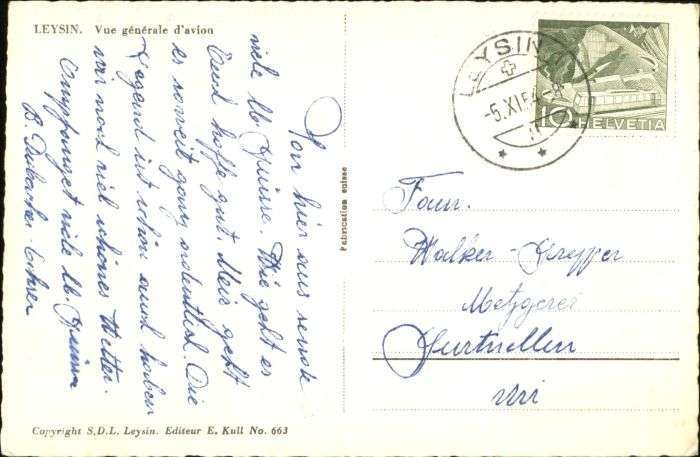 LEYSIN. Vue générale d'avion
Von hier aus sende
viele lb. Grüsse. Wie geht es
Euch hoffe gut. Mir geht
es soweit ganz ordentlich. Die
Gegend ist schön auch haben
wir noch viel schönes Wetter.
Empfanget viele lb. Grüsse
B.
Copyright S.D.L. Leysin. Editeur E. Kull No. 663
Fabrication suisse
LEYSIN
-5.XI.54-8
10
HELVETIA
Fam.
Walker-
Metzgerei
Gurtnellen
Uri